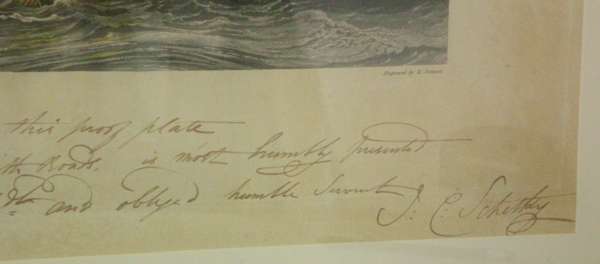 Engraved by E. Duncan
this proof plate
ith Roads. is most humbly presented
and obliged humble Servant
J: C. Schetky